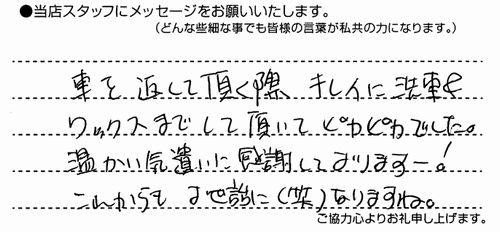 ●当店スタッフにメッセージをお願いいたします。
(どんな些細な事でも皆様の言葉が私共の力になります。)
車を返して頂く際 キレイに洗車&
ワックスまでして頂いてピカピカでした。
温かい気遣いに感謝しておりますー!
これからもお世話に(笑)なりますね。
ご協力心よりお礼申し上げます。